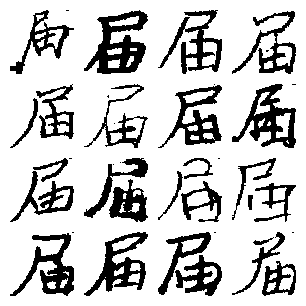 届届届届
届届届届
届届届届
届届届届